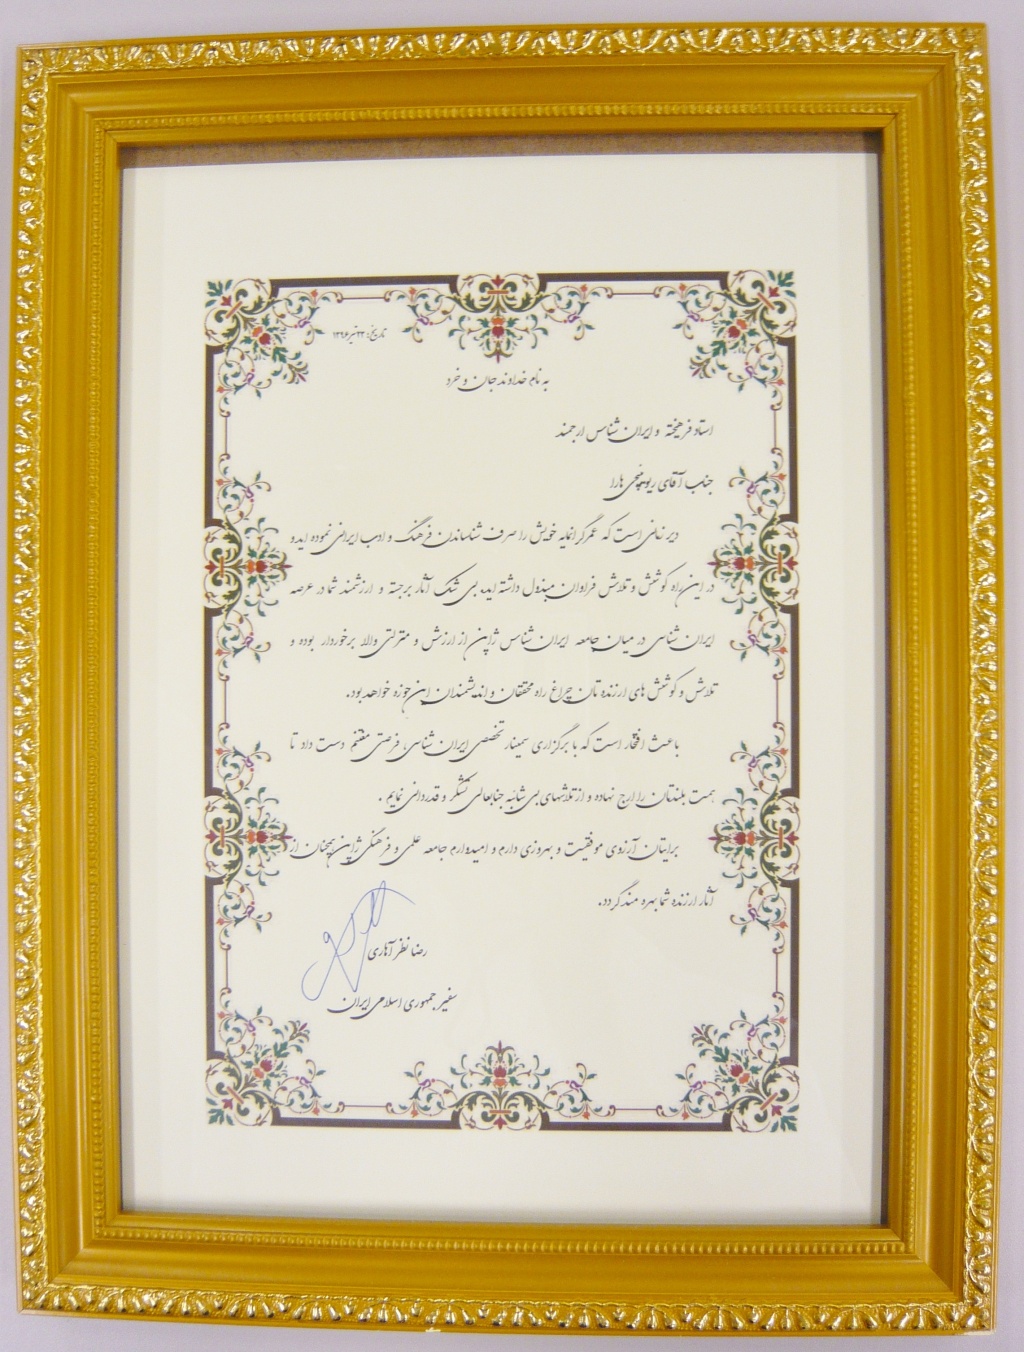 تاریخ: ۲۳ تیر ۱۳۹۶
به نام خداوند جان و خرد
استاد فرهیخته و ایران شناس ارجمند
جناب آقای ریوییچی هارا
دیر زمانی است که عمر گرانمایه خویش را صرف شناساندن فرهنگ و ادب ایرانی نموده اید و
در این راه کوشش و تلاش فراوان مبذول داشته اید. بی شک آثار برجسته و ارزشمند شما در عرصه
ایران شناسی در میان جامعه ایران شناس ژاپن از ارزش و منزلتی والا برخوردار بوده و
تلاش و کوشش های ارزنده تان چراغ راه محققان و اندیشمندان این حوزه خواهد بود.
باعث افتخار است که با برگزاری سمینار تخصصی ایران شناسی، فرصتی مغتنم دست داد تا
همت بلندتان را ارج نهاده و از تلاشهای بی شائبه جنابعالی تشکر و قدردانی نمایم.
برایتان آرزوی موفقیت و بهروزی دارم و امیدوارم جامعه علمی و فرهنگی ژاپن همچنان از
آثار ارزنده شما بهره مند گردد.
رضا نظر آهاری
سفیر جمهوری اسلامی ایران